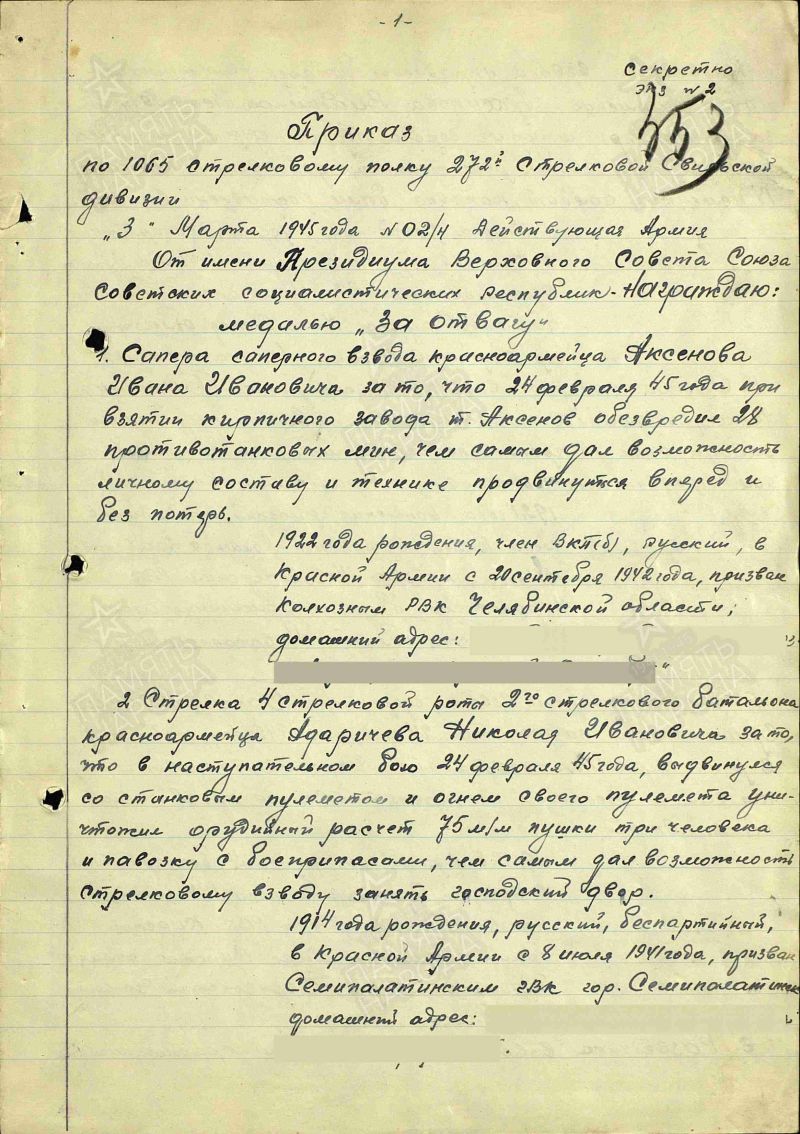 -1-
Секретно
Экз № 2
353
Приказ
по 1065 стрелковому полку 272й Стрелковой Свирьской
дивизии
„3" Марта 1945 года № 02/н Действующая Армия
От имени Президиума Верховного Совета Союза
Советских социалистических республик - Награждаю:
медалью „За отвагу"
1. Сапера саперного взвода красноармейца Аксенова
Ивана Ивановича за то, что 24 февраля 45 года при
взятии кирпичного завода т. Аксенов обезвредил 28
противотанковых мин, чем самым дал возможность
личному составу и технике продвинуться вперед и
без потерь.
1922 года рождения, член ВКП(б), русский, в
Красной Армии с 20 сентября 1942 года, призван
Колхозным РВК Челябинской области;
домашний адрес:
2 Стрелка 4 стрелковой роты 2го стрелкового батальона
красноармейца Адаричева Николая Ивановича за то,
что в наступательном бою 24 февраля 45 года, выдвинулся
со станковым пулеметом и огнем своего пулемета уни-
чтожил орудийный расчет 75 м/м пушки три человека
и павозку с боеприпасами, чем самым дал возможность
стрелковому взводу занять господский двор.
1914 года рождения, русский, беспартийный,
в Красной Армии с 8 июля 1941 года, призван
Семипалатинским ГВК гор. Семипалатинск
домашний адрес: